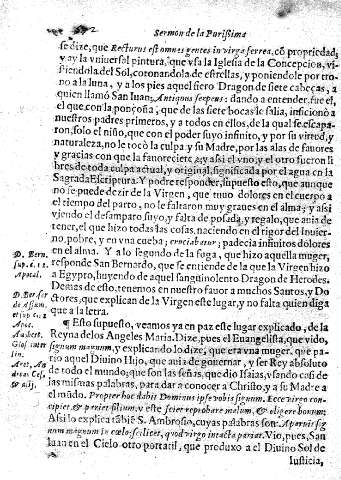 Sermon de la Purissima
se dize, que Recturus est omnes gentes in virga ferrea, cõ propriedad;
y ay la vniuersal pintura, que vsa la Iglesia de la Concepcion, vi-
stiendola del Sol, coronandola de estrellas, y poniendole por tro-
no a la luna, y a los pies aquel fiero Dragon de siete cabeças, a
quien llamò San Iuan, Antiquus serpens: dando a entender, fue el,
el que con la ponçoña, que de las siete bocas le salia, inficionò a
nuestros padres primeros, y a todos en ellos, de la qual se escapa-
ron, solo el niño, que con el poder suyo infinito, y por su virtud, y
naturaleza, no le tocò la culpa y su Madre, por las alas de fauores
y gracias con que la fauoreciere; y assi el vno, y el otro fueron li
bres de toda culpa actual, y original, significada por el agua en la
Sagrada Escriptura. Y podre responder, supuesto esto, que aunque
no se puede dezir de la Virgen, que tuuo dolores en el cuerpo a
el tiempo del parto, no le faltaron muy graues en el alma; y assi
viendo el desamparo suyo, y falta de posada, y regalo, que auia de
tener, el que hizo todas las cosas, naciendo en el rigor del Inuier-
no, pobre, y en vna cueba; cruciabatur; padecia infinitos dolores
en el alma. Y a lo segundo de la fuga, que hizo aquella muger,
responde San Bernardo, que se entiende de la que la Virgen hizo
a Egipto, huyendo de aquel sangriento Dragon de Herodes.
Demas de esto, tenemos en nuestro fauor a muchos Santos, y Do
ctores, que explican de la Virgen este lugar, y no falta quien diga
que a la letra.
D. Bern.
sup. c. 12
Apocal.
¶ Esto supuesto, veamos ya en paz este lugar explicado, de la
Reyna de los Angeles Maria. Dize, pues el Euangelista, que vido,
signum magnum, y explicandolo dize, que era vna muger, que pa-
rio aquel Diuino Hijo, que auia de gouernar, y ser Rey absoluto
de todo el mundo; que son las señas, que dio Isaias, vsando casi de
las mismas palabras, para dar a conocer a Christo, y a su Madre a
el mũdo. Propter hoc dabit Dominus ipse vobis signum. Ecce virgo con-
cipiet, & pariet filium, & este sciet reprobare malum, & eligere bonum;
Assi lo explica tãbiẽ S. Ambrosio, cuyas palabras son: Apparuit sig
num magnum in cœlo scilicet, quod virgo intacta pariat. Vio, pues, San
Iuan en el Cielo otro portatil, que produxo a el Diuino Sol de
Iusticia,